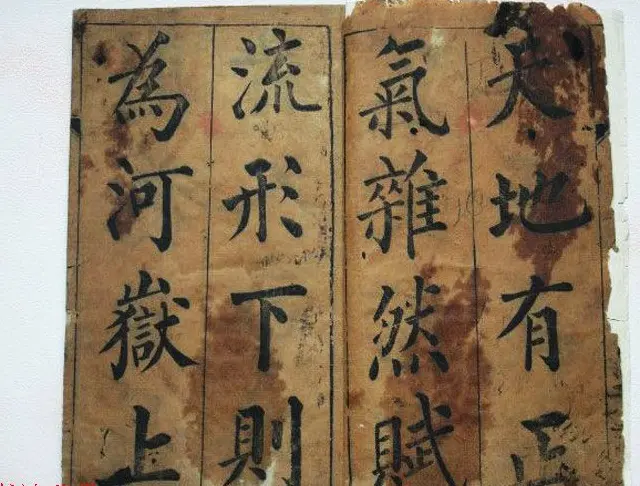 天地有正
氣雜然賦
流形下則
為河嶽上